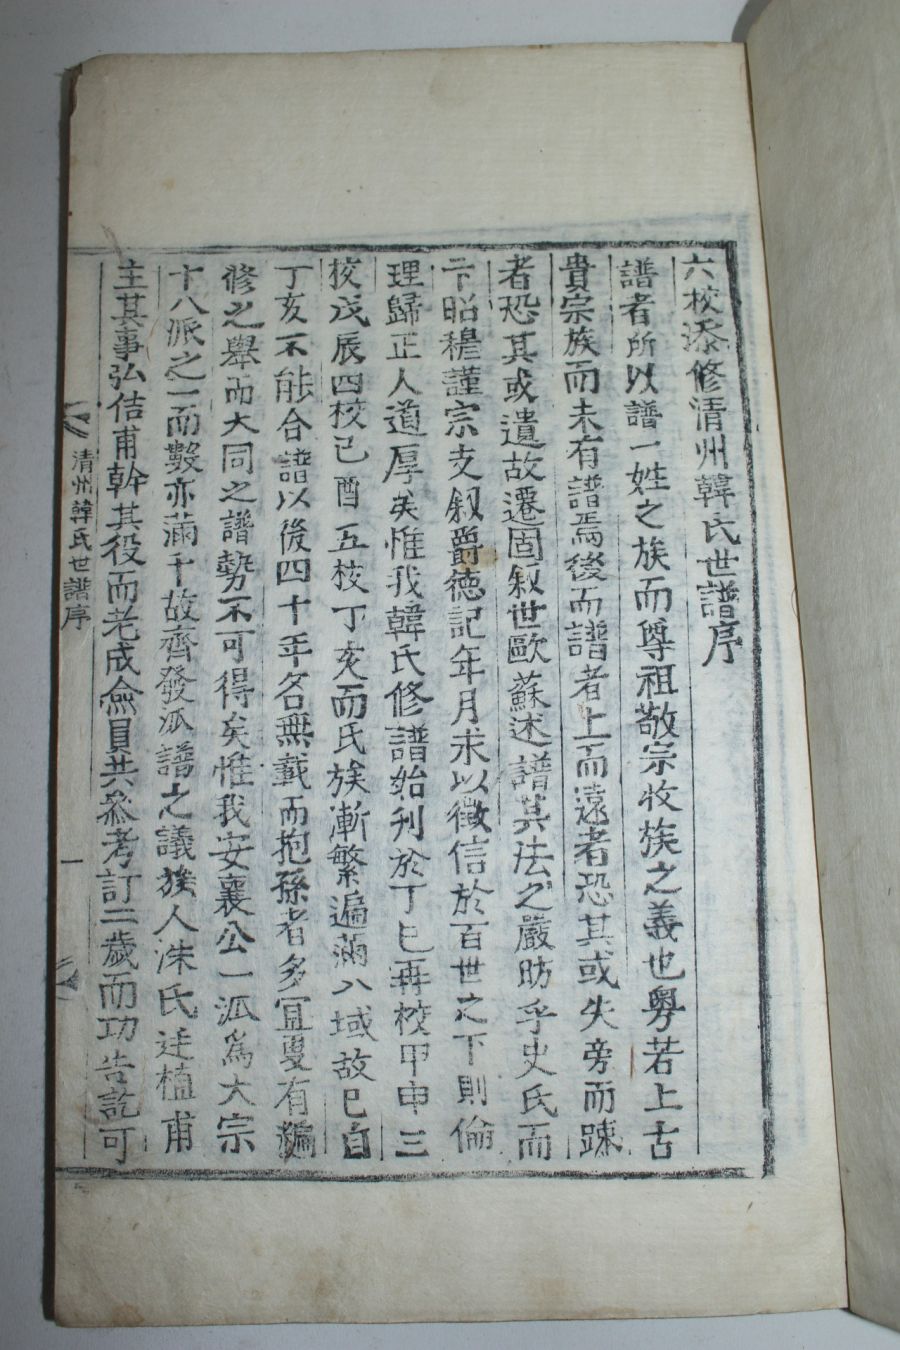 六校添修清州韓氏世譜序
譜者所以譜一姓之族而尊祖敬宗收族之義也粤若上古
貴宗族而未有譜焉後而譜者上而遠者恐其或失旁而踈
者恐其或遺故遷固叙世歐蘇述譜其法之嚴昉乎史氏而
下昭穆謹宗支叙爵德記年月求以徵信於百世之下則倫
理歸正人道厚矣惟我韓氏修譜始刋於丁巳再校甲申三
校戊辰四校己酉五校丁亥而氏族漸繁遍滿八域故已自
丁亥不能合譜以後四十年名無載而抱孫者多冝更有編
修之舉而大同之譜勢不可得矣惟我安襄公一派爲大宗
十八派之一而數亦滿千故齊發派譜之議族人洙氏廷植甫
主其事弘佶甫幹其役而老成僉員共參考訂二歲而功告訖可
清州韓氏世譜序
一